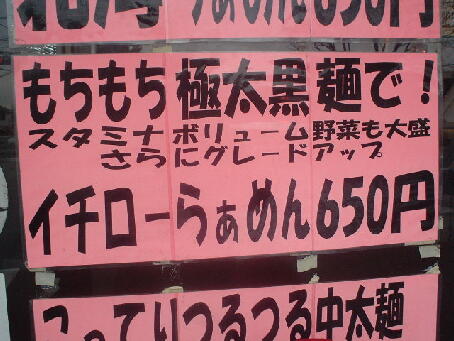 らぁめん650円
もちもち極太黒麺で!
スタミナボリューム野菜も大盛
さらにグレードアップ
イチローらぁめん650円
こってりつるつる中太麺